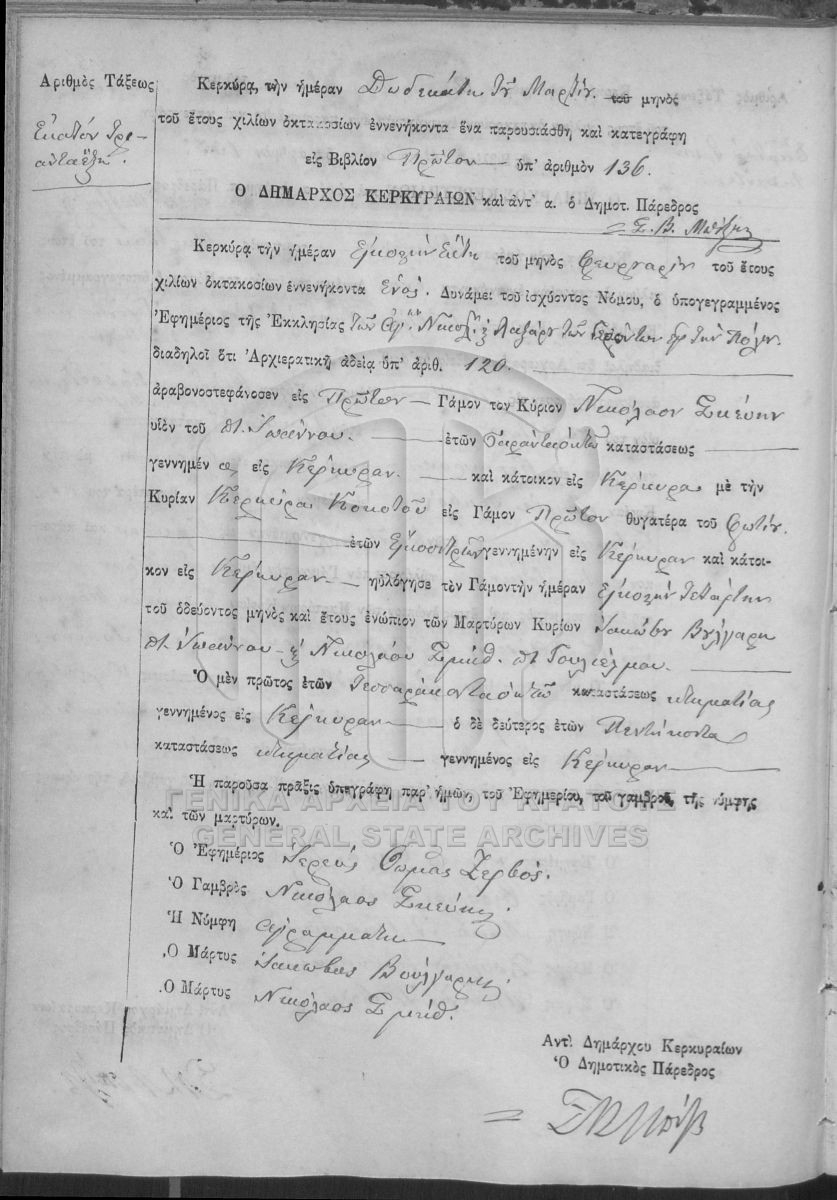 Ἀριθμὸς Τάξεως
Ἑκατὸν τρι-
άντα ἕξη.
Κερκύρα, τὴν ἡμέραν Δωδεκάτη τοῦ Μαρτίου. τοῦ μηνὸς
τοῦ ἔτους χιλίων ὀκτακοσίων ἐννενήκοντα ἕνα παρουσιάσθη καὶ κατεγράφη
εἰς Βιβλίον Πρῶτον ὑπ' ἀριθμὸν 136.
Ο ΔΗΜΑΡΧΟΣ ΚΕΡΚΥΡΑΙΩΝ καὶ ἀντ' α. ὁ Δημοτ. Πάρεδρος
Κερκύρα τὴν ἡμέραν τοῦ μηνὸς Φευρουαρίου τοῦ ἔτους
χιλίων ὀκτακοσίων ἐννενήκοντα ἑνὸς. Δυνάμει τοῦ ἰσχύοντος Νόμου, ὁ ὑπογεγραμμένος
Ἐφημέριος τῆς Ἐκκλησίας τῶν Ἁγ. Νικολ. & Λαζάρου τῶν Γερόντων εἰς τὴν Πόλιν
διαδηλοῖ ὅτι Ἀρχιερατικῇ ἀδείᾳ ὑπ' ἀριθ. 120.
ἀραβονοστεφάνοσεν εἰς Πρῶτον Γάμον τον Κύριον Νικόλαον Σκεύην
υἱὸν τοῦ Ἰωάννου. ἐτῶν Σαραντα ὀκτὼ καταστάσεως
γεννημένος εἰς Κέρκυραν. καὶ κάτοικον εἰς Κέρκυρα με τὴν
Κυρίαν Κέρκυρα Κοκοτοῦ εἰς Γάμον Πρῶτον θυγατέρα τοῦ Φωτίου.
ἐτῶν Εἰκοσιτριῶν γεννημένην εἰς Κέρκυραν καὶ κάτοι-
κον εἰς Κέρκυραν ηὐλόγησε τὸν Γάμον τὴν ἡμέραν Εἰκοστὴν τετάρτην
τοῦ ὁδεύοντος μηνὸς καὶ ἔτους ἐνώπιον τῶν Μαρτύρων Κυρίων Ἰακώβου Βούλγαρη
Ἰωάννου & Νικολάου Σμιθ. Γουλιέλμου.
Ὁ μὲν πρῶτος ἐτῶν Τεσσαράκοντα ὀκτὼ καταστάσεως κτηματίας
γεννημένος εἰς Κέρκυραν ὁ δὲ δεύτερος ἐτῶν Πεντήκοντα
καταστάσεως κτηματίας γεννημένος εἰς Κέρκυραν
Ἡ παροῦσα πρᾶξις ὑπεγράφη παρ' ἡμῶν, τοῦ Ἐφημερίου, τοῦ γαμβροῦ, τῆς νύμφης
καὶ τῶν μαρτύρων.
ΓΕΝΙΚΑ ΑΡΧΕΙΑ ΤΟΥ ΚΡΑΤΟΥΣ
GENERAL STATE ARCHIVES
Ὁ Ἐφημέριος Ἱερεὺς Θωμᾶς Ζερβός.
Ὁ Γαμβρὸς Νικόλαος Σκεύης
Ἡ Νύμφη ἀγράμματη
Ὁ Μάρτυς Ἰάκωβος Βούλγαρης
Ὁ Μάρτυς Νικόλαος Σμιθ.
Ἀντὶ Δημάρχου Κερκυραίων
Ὁ Δημοτικὸς Πάρεδρος